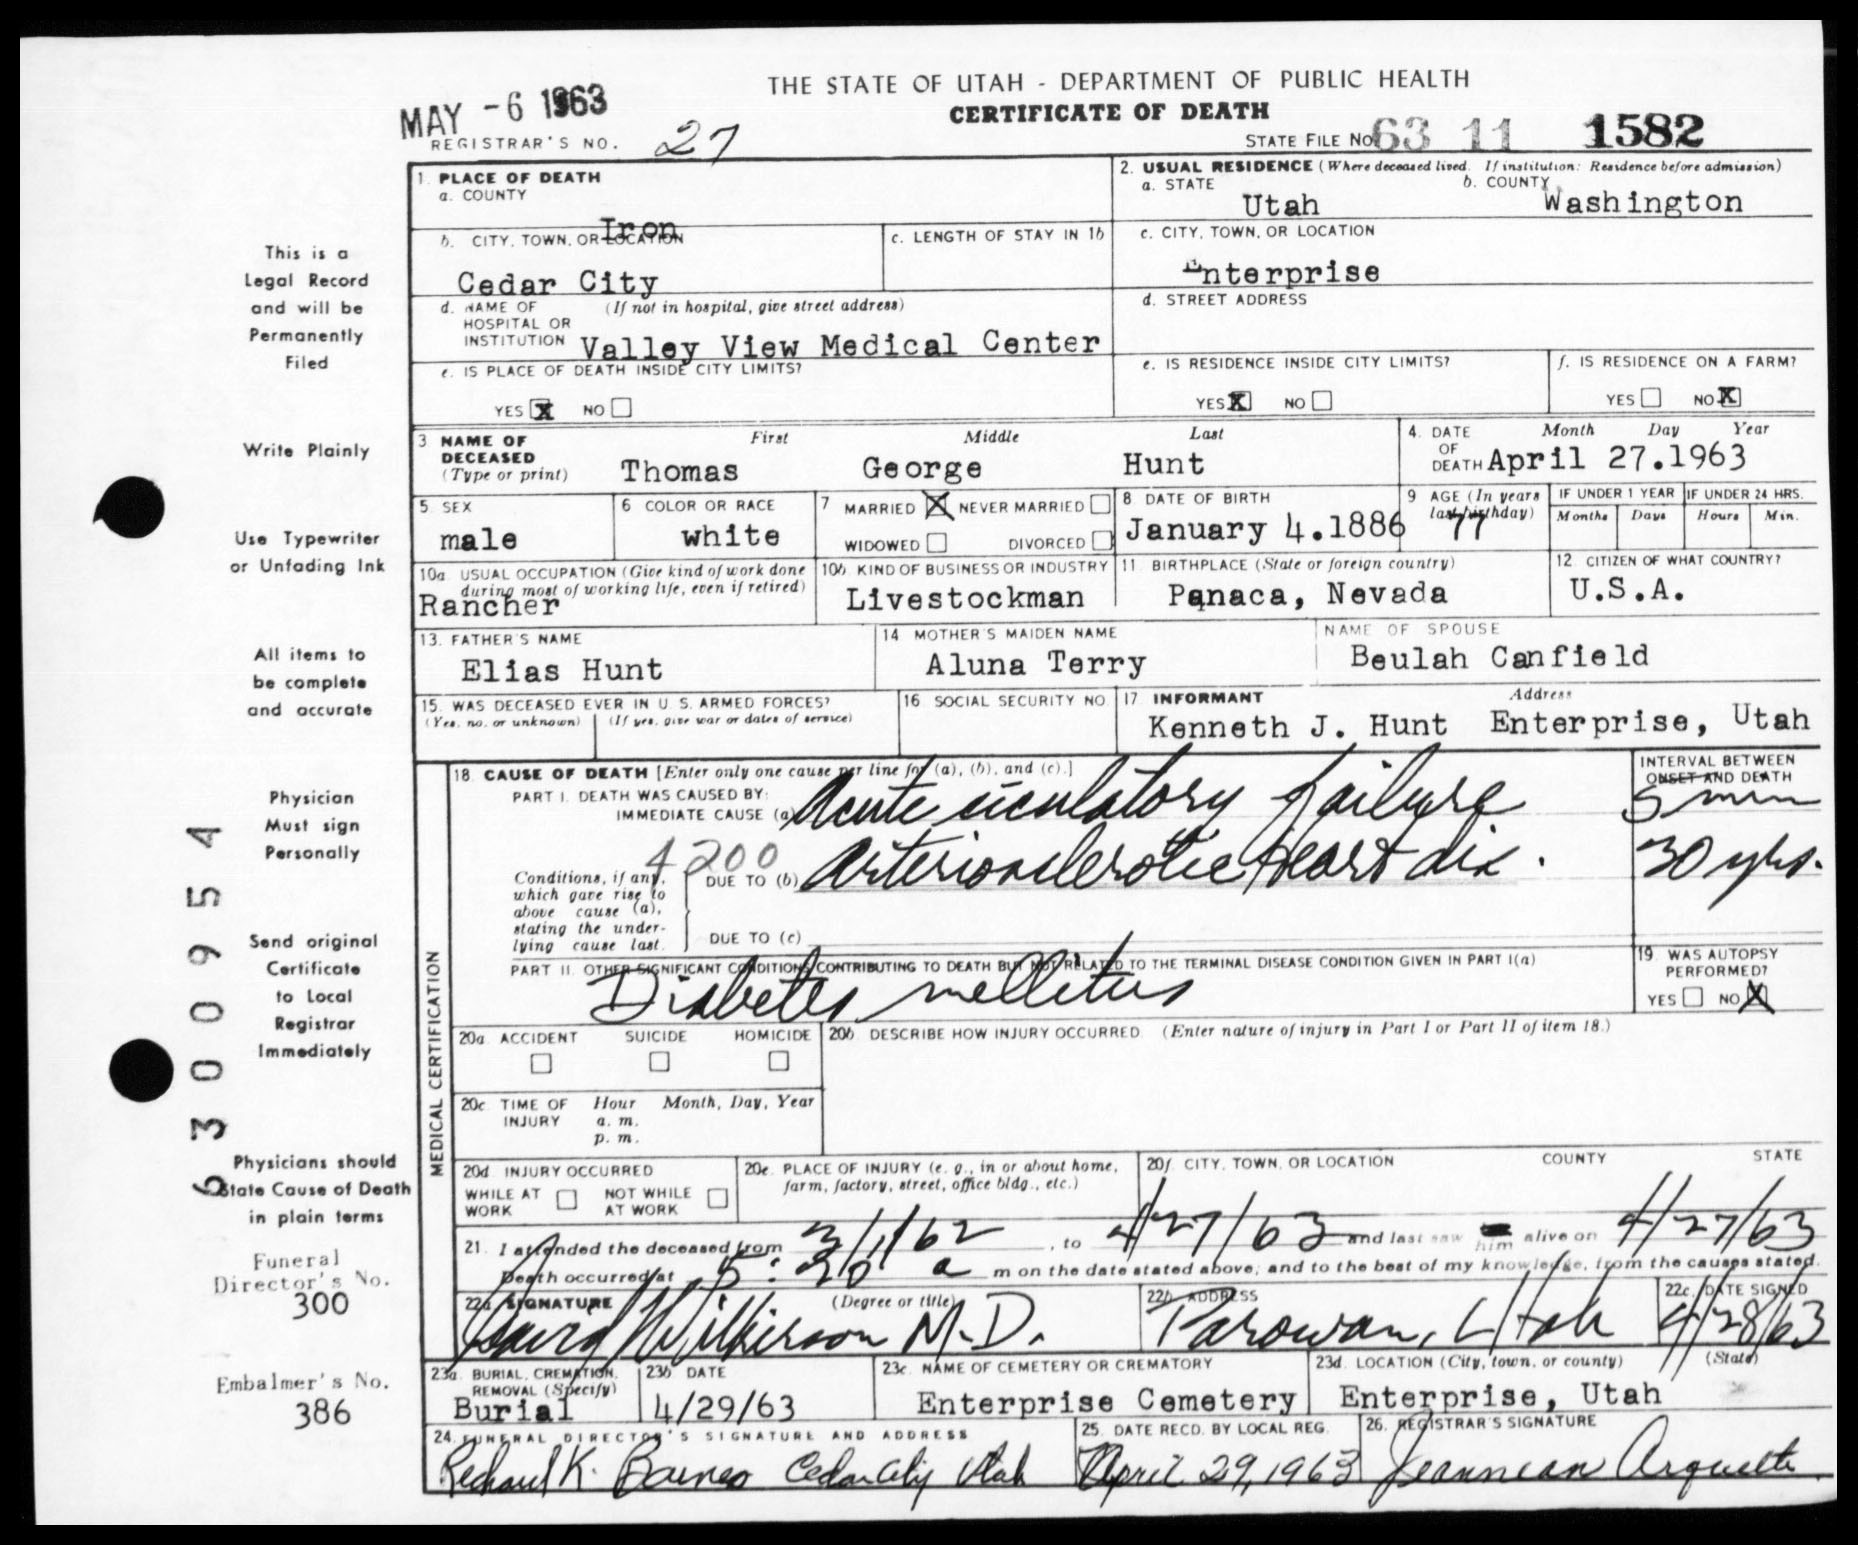 THE STATE OF UTAH - DEPARTMENT OF PUBLIC HEALTH
MAY -6 1963
CERTIFICATE OF DEATH
REGISTRAR'S NO. 27
STATE FILE NO 63 11 1582
1. PLACE OF DEATH
a. COUNTY
Iron
2. USUAL RESIDENCE (Where deceased lived. If institution: Residence before admission)
a. STATE b. COUNTY
Utah Washington
b. CITY, TOWN, OR LOCATION
Cedar City
c. LENGTH OF STAY IN 1b
c. CITY, TOWN, OR LOCATION
Enterprise
d. NAME OF (If not in hospital, give street address)
HOSPITAL OR
INSTITUTION Valley View Medical Center
d. STREET ADDRESS
e. IS PLACE OF DEATH INSIDE CITY LIMITS?
YES X NO
e. IS RESIDENCE INSIDE CITY LIMITS?
YES X NO
f. IS RESIDENCE ON A FARM?
YES NO X
3 NAME OF First Middle Last
DECEASED
(Type or print) Thomas George Hunt
4. DATE Month Day Year
OF
DEATH April 27.1963
5. SEX
male
6 COLOR OR RACE
white
7 MARRIED X NEVER MARRIED
WIDOWED DIVORCED
8 DATE OF BIRTH
January 4.1886
9 AGE (In years
last birthday)
77
IF UNDER 1 YEAR
Months Days
IF UNDER 24 HRS.
Hours Min.
10a. USUAL OCCUPATION (Give kind of work done
during most of working life, even if retired)
Rancher
10b. KIND OF BUSINESS OR INDUSTRY
Livestockman
11 BIRTHPLACE (State or foreign country)
Panaca, Nevada
12 CITIZEN OF WHAT COUNTRY?
U.S.A.
13. FATHER'S NAME
Elias Hunt
14 MOTHER'S MAIDEN NAME
Aluna Terry
NAME OF SPOUSE
Beulah Canfield
15. WAS DECEASED EVER IN U. S. ARMED FORCES?
(Yes, no, or unknown) (If yes, give war or dates of service)
16 SOCIAL SECURITY NO.
17 INFORMANT Address
Kenneth J. Hunt Enterprise, Utah
MEDICAL CERTIFICATION
18. CAUSE OF DEATH [Enter only one cause per line for (a), (b), and (c).]
PART I. DEATH WAS CAUSED BY:
IMMEDIATE CAUSE (a) Acute circulatory failure
INTERVAL BETWEEN
ONSET AND DEATH
5 min
4200
Conditions, if any,
which gave rise to
above cause (a),
stating the under-
lying cause last.
DUE TO (b) Arteriosclerotic Heart dis. 30 yrs.
DUE TO (c)
PART II. OTHER SIGNIFICANT CONDITIONS CONTRIBUTING TO DEATH BUT NOT RELATED TO THE TERMINAL DISEASE CONDITION GIVEN IN PART I(a)
Diabetes mellitus
19. WAS AUTOPSY
PERFORMED?
YES NO X
20a. ACCIDENT SUICIDE HOMICIDE
20b. DESCRIBE HOW INJURY OCCURRED. (Enter nature of injury in Part I or Part II of item 18.)
20c. TIME OF Hour Month, Day, Year
INJURY a. m.
p. m.
20d. INJURY OCCURRED
WHILE AT NOT WHILE
WORK AT WORK
20e. PLACE OF INJURY (e. g., in or about home,
farm, factory, street, office bldg., etc.)
20f. CITY, TOWN, OR LOCATION COUNTY STATE
21. I attended the deceased from 3/1/62, to 4/27/63 and last saw him alive on 4/27/63
Death occurred at 5:20 a m on the date stated above; and to the best of my knowledge, from the causes stated.
22a. SIGNATURE (Degree or title)
David Wilkerson M.D.
22b. ADDRESS
Parowan, Utah
22c. DATE SIGNED
4/28/63
23a. BURIAL, CREMATION,
REMOVAL (Specify)
Burial
23b. DATE
4/29/63
23c. NAME OF CEMETERY OR CREMATORY
Enterprise Cemetery
23d. LOCATION (City, town, or county) (State)
Enterprise, Utah
24. FUNERAL DIRECTOR'S SIGNATURE AND ADDRESS
Richard K. Barnes Cedar City Utah
25. DATE RECD. BY LOCAL REG.
April 29, 1963
26. REGISTRAR'S SIGNATURE
Jeannean Arquette
This is a
Legal Record
and will be
Permanently
Filed
Write Plainly
Use Typewriter
or Unfading Ink
All items to
be complete
and accurate
Physician
Must sign
Personally
Send original
Certificate
to Local
Registrar
Immediately
Physicians should
State Cause of Death
in plain terms
Funeral
Director's No.
300
Embalmer's No.
386
6300954